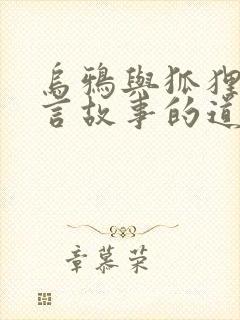 烏鴉與狐狸
言故事的道
章慕荣